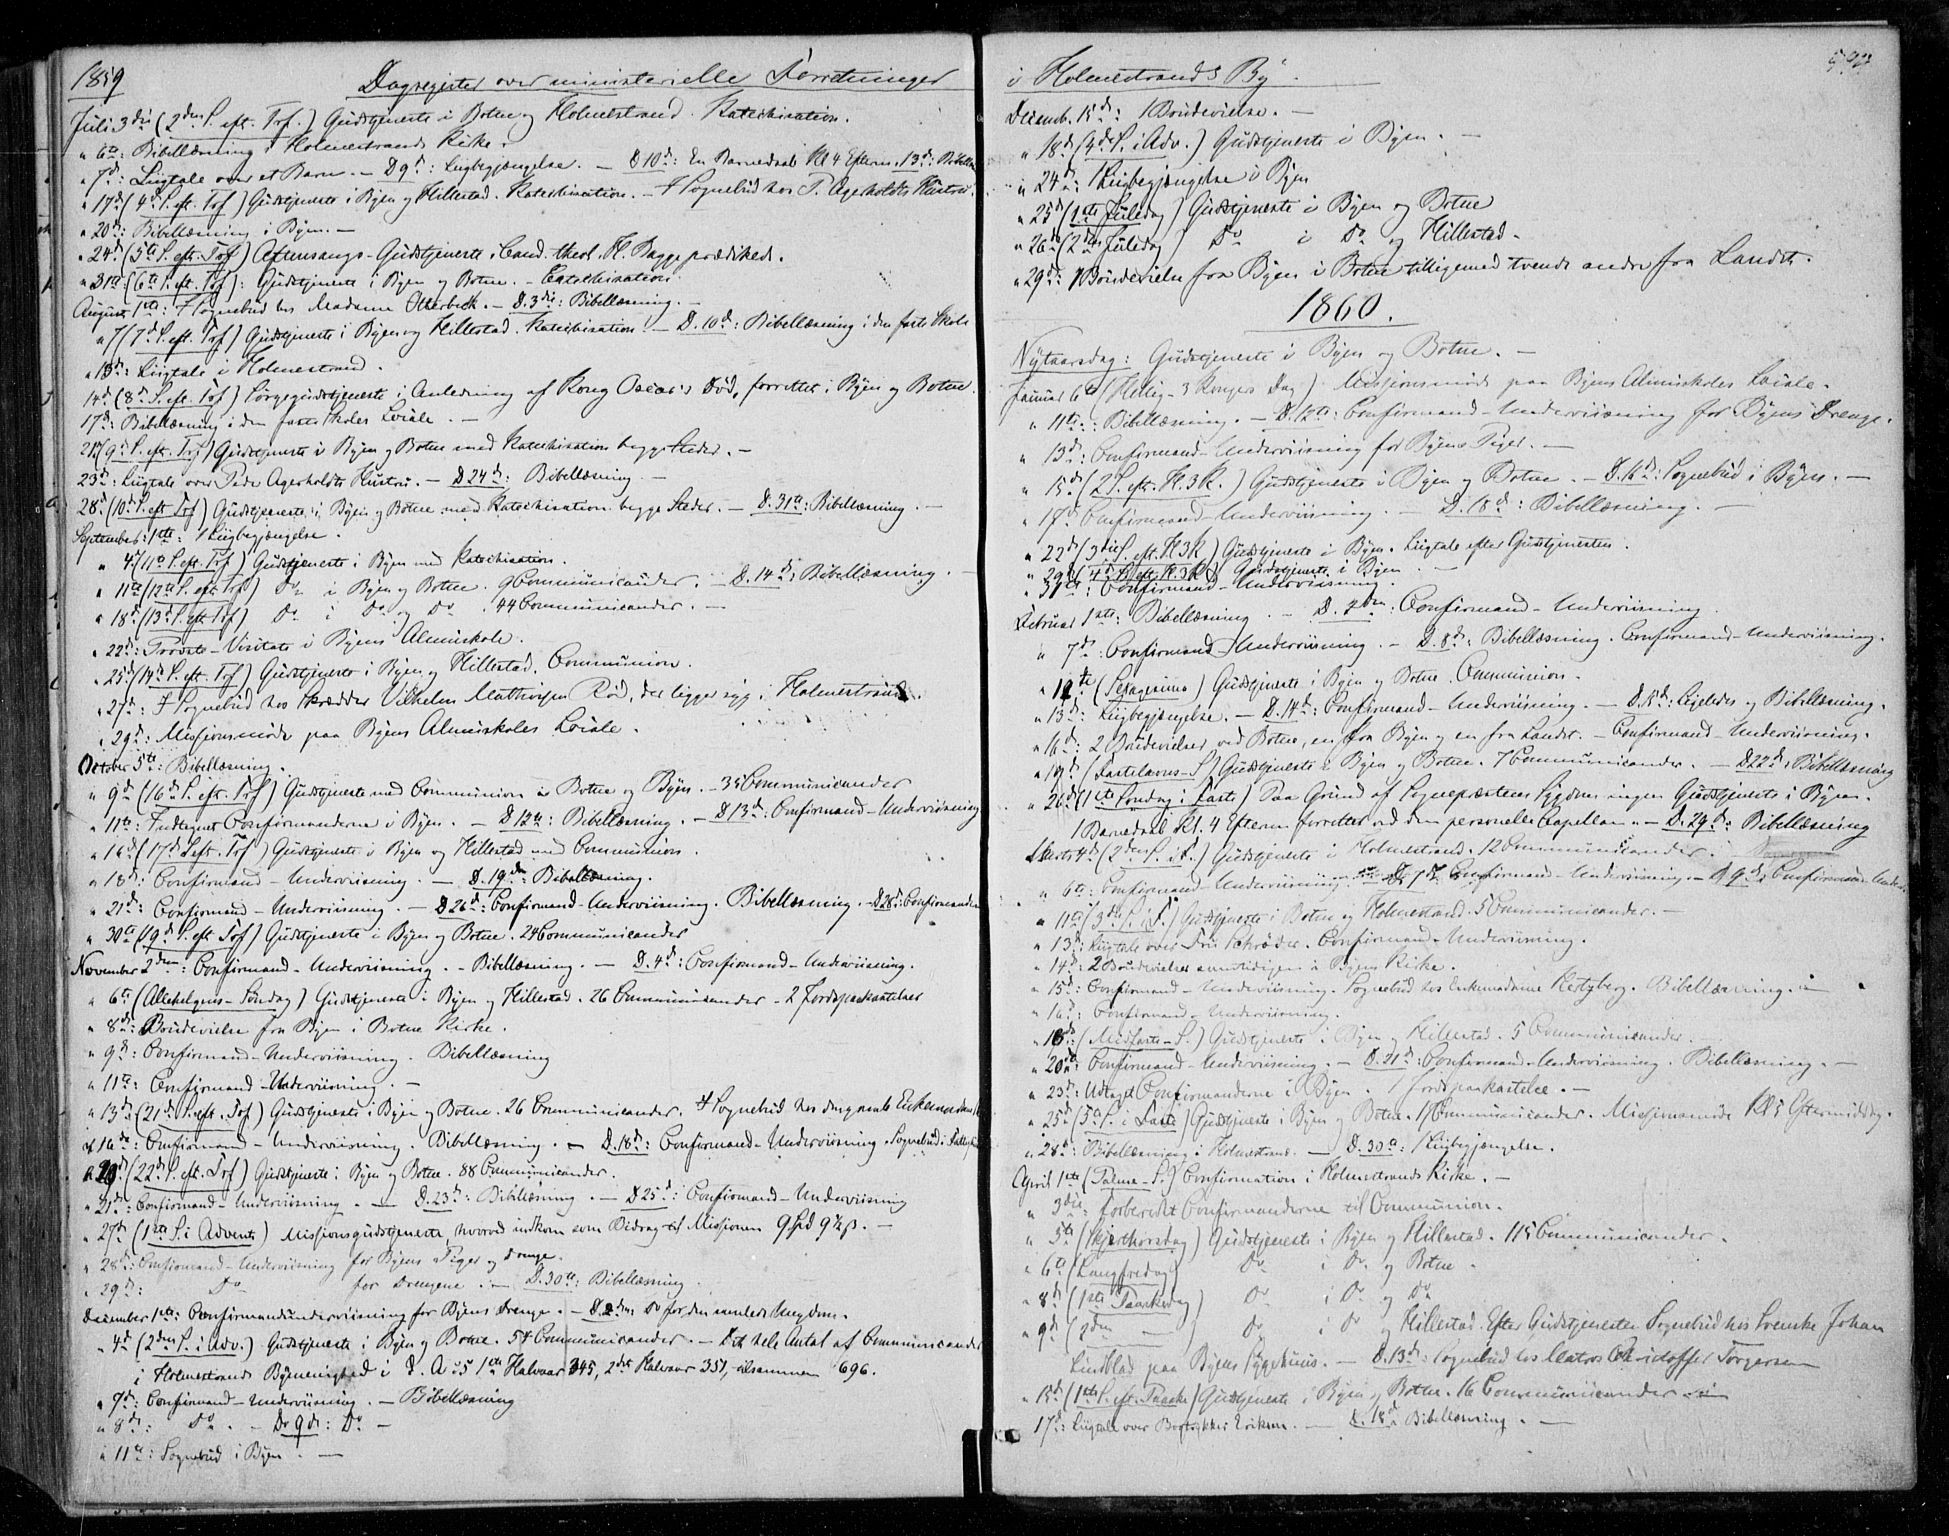 1859
Dagregister over ministerielle Forretninger
Juli 3die (2den S. eft. Tref.) Gudstjeneste i Botne og Holmestrand. Katechisation.
" 6te: Bibellæsning i Holmestrands Kirke.
" 7d: Liigtale over et Barn. – D 9d: Liigbegjængelse. – D 10d: En Barnedaab Kl 4 Efterm. 13d: Bibellæs
" 17d (4d S. eft. Tref) Gudstjeneste i Byen og Hillestad. Katechisation. – Sognebud hos P. Agerholdts Hustru.
" 20d: Bibellæsning i Byen. –
" 24d (5te S. eft. Tref) Aftensangs-Gudstjeneste. Cand. theol. H. Bagge prædikede.
" 31te (6te S. eft. Tref): Gudstjeneste i Byen og Botne. – Catechisation.
August 1te: Sognebud hos Madame Otterbech. – D. 3die: Bibellæsning. –
" 7 (7d S. eft. Tref) Gudstjeneste i Byen og Hillestad. Katechisation. – D. 10d: Bibellæsning i den faste Skole
" 13d: Liigtale i Holmestrand.
14d (8d S. eft. Tref) Sørgegudstjeneste i Anledning af Kong Oscar's Død, forrettet i Byen og Botne.
17d: Bibellæsning i den faste Skoles Locale. –
21d (9d S. eft. Tref) Gudstjeneste i Byen og Botne med Katechisation begge Steder. –
23d: Liigtale over Peder Agerholdts Hustru. – D 24d: Bibellæsning. –
28d (10d S. eft Tref) Gudstjeneste i Byen og Botne med Katechisation begge Steder. – D. 31te: Bibellæsning. –
September 1te: 1 Liigbegjængelse.
" 4d (11te S. eft. Tref) Gudstjeneste i Byen med Katechisation.
" 11te (12te S. eft Tref) Do i Byen og Botne. 9 Communicander. – D. 14d: Bibellæsning. –
" 18d (13d S. eft Tref) Do i Do og Do. 44 Communicander. –
" 22d: Provste-Visitats i Byens Almuskole.
" 25d (14d S. eft. Tref) Gudstjeneste i Byen og Hillestad. Communion.
" 27d: Sognebud hos Skrædder Vilhelm Mathisen Rød, der ligger syg i Holmestrand.
" 29d: Missionsmøde paa Byens Almuskoles Locale.
October 5te: Bibellæsning.
" 9d (16d S. eft. Tref) Gudstjeneste med Communion i Botne og Byen. – 35 Communicander
" 11te: Indtegnet Confirmanderne i Byen. – D 12te: Bibellæsning. – D 13d: Confirmand-Underviisning
" 16d (17d S. eft. Tref) Gudstjeneste i Byen og Hillestad med Communion.
" 18d: Confirmand-Underviisning. – D. 19de Bibellæsning.
" 21d: Confirmand-Underviisning. – D 26d: Confirmand-Underviisning. Bibellæsning. – D 28d: Confirmanden
" 30te (19d S. eft Tref) Gudstjeneste i Byen og Botne. 24 Communicander
November 2den: Confirmand-Underviisning. – Bibellæsning. – D. 4d: Confirmand-Underviisning.
" 6te (Allehelgens-Søndag) Gudstjeneste i Byen og Hillestad. 26 Communicander – 2 Jordspaakastelser
" 8d: Brudevielse fra Byen i Botne Kirke.
" 9d: Confirmand-Underviisning. Bibellæsning
" 11te: Confirmand-Underviisning. –
" 13d (21d S. eft. Tref) Gudstjeneste i Byen og Botne. 26 Communicander. Sognebud hos Enkemadame
" 16de: Confirmand-Underviisning. Bibellæsning. – D. 18d: Confirmand-Underviisning. Sognebud i
" 20d (22d S. eft. Tref) Gudstjeneste i Byen og Botne. 88 Communicander.
" 21d: Confirmand-Underviisning. – D 23d: Bibellæsning. – D 25d: Confirmand-Underviisning
" 27d (1ste S. i Advent) Missionsgudstjeneste, hvorved indkom som Bidrag til Missionen 9 Spd 9½ ß. –
" 28d: Confirmand-Underviisning for Byens Piger og Drenge.
" 29d: Do for Drengene. – D. 30te: Bibellæsning.
December 1te: Confirmandunderviisning for Byens Drenge. – D. 2den Do for den samlede Ungdom.
" 4d (2den S. i Adv.) Gudstjeneste i Byen og Botne. 54 Communicander. – Det hele Antal af Communicander
i Holmestrands Bymenighed i d. A. 1ste Halvaar 345, 2det Halvaar 351, tilsammen 696.
" 7d: Confirmand-Underviisning. – Bibellæsning
" 8d: Do. – D. 9d: Do –
" 11te: Sognebud i Byen. –
i Holmestrands By.
Decemb. 15d: 1 Brudevielse. –
" 18d (4d S. i Adv.) Gudstjeneste i Byen. –
" 24d: 1 Liigbegjængelse i Byen
" 25d (1ste Juledag) Gudstjeneste i Byen og Botne
" 26d (2den Juledag) Do i Do og Hillestad.
" 29d: 1 Brudevielse fra Byen i Botne tilligemed tvende andre fra Landet.
1860.
Nytaarsdag: Gudstjeneste i Byen og Botne. –
Januar 6te (Hellig-3 Kongers Dag) Missionsmøde paa Byens Almuskoles Locale.
" 11te: Bibellæsning. – D. 12te: Confirmand-Underviisning for Byens Drenge.
" 13d: Confirmand-Underviisning for Byens Piger. –
" 15d (2 S. eft. H. 3 K.) Gudstjeneste i Byen og Botne. – D. 16d: Sognebud i Byen. –
" 17d Confirmand-Underviisning. – D. 18d: Bibellæsning. –
" 22d (3die S. eft. H 3 K) Gudstjeneste i Byen. Liigtale efter Gudstjenesten.
" 29d (4d S. eft. H. 3 K) Gudstjeneste i Byen. –
" 31te: Confirmand-Underviisning.
Februar 1ste: Bibellæsning. – D. 2den: Confirmand-Underviisning.
" 7d: Confirmand-Underviisning. – D. 8d: Bibellæsning. Confirmand-Underviisning.
" 12te (Sexagesima) Gudstjeneste i Byen og Botne. Communion. –
" 13d: Liigbegjængelse. – D. 14d: Confirmand-Underviisning. – D. 15d: Ligeledes og Bibellæsning.
" 16d: 2 Brudevielser ved Botne, en fra Byen og en fra Landet. – Confirmand-Underviisning.
" 19d (Fastelavns-S.) Gudstjeneste i Byen og Botne. 7 Communicander. – D 22d: Bibellæsning
" 26d (1ste Søndag i Faste) Paa Grund af Sognepræstens Sygdom ingen Gudstjeneste i Byen.
1 Barnedaab Kl. 4 Efterm. forrettet ved den personelle Capellan. – D. 29d: Bibellæsning
Marts 4d (2den S. i F.) Gudstjeneste i Holmestrand. 12 Communicander.
" 6te: Confirmand-Underviisning. – D. 7d: Confirmand-Underviisning. – D. 9d: Confirmand-Underv
" 11te (3die S. i F.) Gudstjeneste i Botne og Holmestrand. 5 Communicander. –
" 13d: Liigtale over Fru Schrøder. Confirmand-Underviisning.
" 14d: 2 Brudevielser samtidigen i Byens Kirke.
" 15d: Confirmand-Underviisning. Sognebud hos Enkemadame Hertzberg. Bibellæsning. –
" 16d: Confirmand-Underviisning.
" 18d: (Midfaste-S.) Gudstjeneste i Byen og Hillestad. 5 Communicander.
" 20de: Confirmand-Underviisning. – D. 21d: Confirmand-Underviisning. Bibellæsning. –
" 23d: Udtaget Confirmanderne i Byen. 1 Jordspaakastelse. –
" 25d (5te S. i Faste) Gudstjeneste i Byen og Botne. 11 Communicander. Missionsmøde Kl 5 Eftermiddag.
" 28d: Bibellæsning i Holmestrand. – D. 30te: 1 Liigbegjængelse.
April 1ste (Palme-S.) Confirmation i Holmestrands Kirke. –
" 3die: forberedet Confirmanderne til Communion.
" 5te (Skjærthorsdag) Gudstjeneste i Byen og Hillestad. 115 Communicander.
" 6te (Langfredag) Do i Do og Botne.
" 8d (1ste Paaskedag) Do i Do og Do
" 9d (2den —) Do i Do og Hillestad. Efter Gudstjenesten Sognebud hos Svenske Johan
Lindblad paa Byens Sygehuus. – D. 13d: Sognebud hos Matros Christoffer Torgersen
" 15d (1ste S. eft. Paaske) Gudstjeneste i Byen og Botne. 16 Communicander –
17d: Liigtale over Bogtrykker Eriksen. – D. 18d: Bibellæsning. –